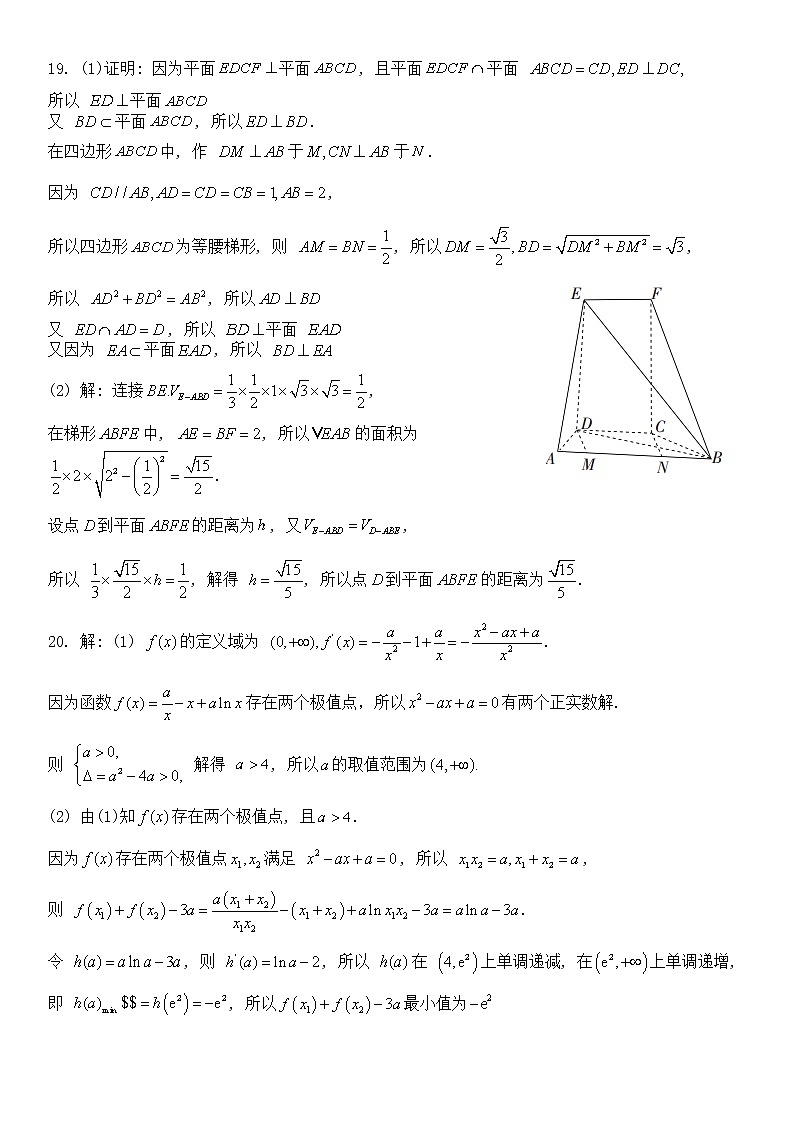 19. (1)证明: 因为平面EDCF⊥平面ABCD, 且平面EDCF∩平面 ABCD=CD,ED⊥DC,
所以 ED⊥平面ABCD
又 BD⊂平面ABCD, 所以ED⊥BD.
在四边形ABCD中, 作 DM⊥AB于M,CN⊥AB于N.
因为 CD//AB,AD=CD=CB=1,AB=2,
所以四边形ABCD为等腰梯形, 则 AM=BN=1/2, 所以DM=√3/2,BD=√(DM²+BM²)=√3,
所以 AD²+BD²=AB², 所以AD⊥BD
又 ED∩AD=D, 所以 BD⊥平面 EAD
又因为 EA⊂平面EAD, 所以 BD⊥EA
(2) 解: 连接BE.V_{E-ABD}=1/3×1/2×1×√3×√3=1/2,
在梯形ABFE中, AE=BF=2, 所以VEAB的面积为
1/2×2×√(2²-(1/2)²)=√15/2.
设点D到平面ABFE的距离为h, 又V_{E-ABD}=V_{D-ABE},
所以 1/3×√15/2×h=1/2, 解得 h=√15/5, 所以点D到平面ABFE的距离为√15/5.
E F
D C
A M N B
20. 解: (1) f(x)的定义域为 (0,+∞),f'(x)=-a/x²-1+a/x=-(x²-ax+a)/x².
因为函数f(x)=a/x-x+aln x存在两个极值点, 所以x²-ax+a=0有两个正实数解.
则 {a>0, Δ=a²-4a>0, 解得 a>4, 所以a的取值范围为(4,+∞).
(2) 由(1)知f(x)存在两个极值点, 且a>4.
因为f(x)存在两个极值点x₁,x₂满足 x²-ax+a=0, 所以 x₁x₂=a,x₁+x₂=a,
则 f(x₁)+f(x₂)-3a=a(x₁+x₂)/(x₁x₂)-(x₁+x₂)+aln x₁x₂-3a=aln a-3a.
令 h(a)=aln a-3a, 则 h'(a)=ln a-2, 所以 h(a)在 (4,e²)上单调递减, 在(e²,+∞)上单调递增,
即 h(a)_{min}$$=h(e²)=-e², 所以f(x₁)+f(x₂)-3a最小值为-e²